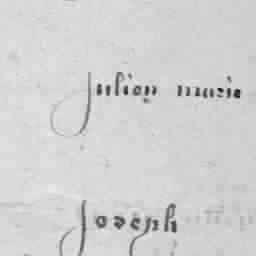 Julien marie
Joseph